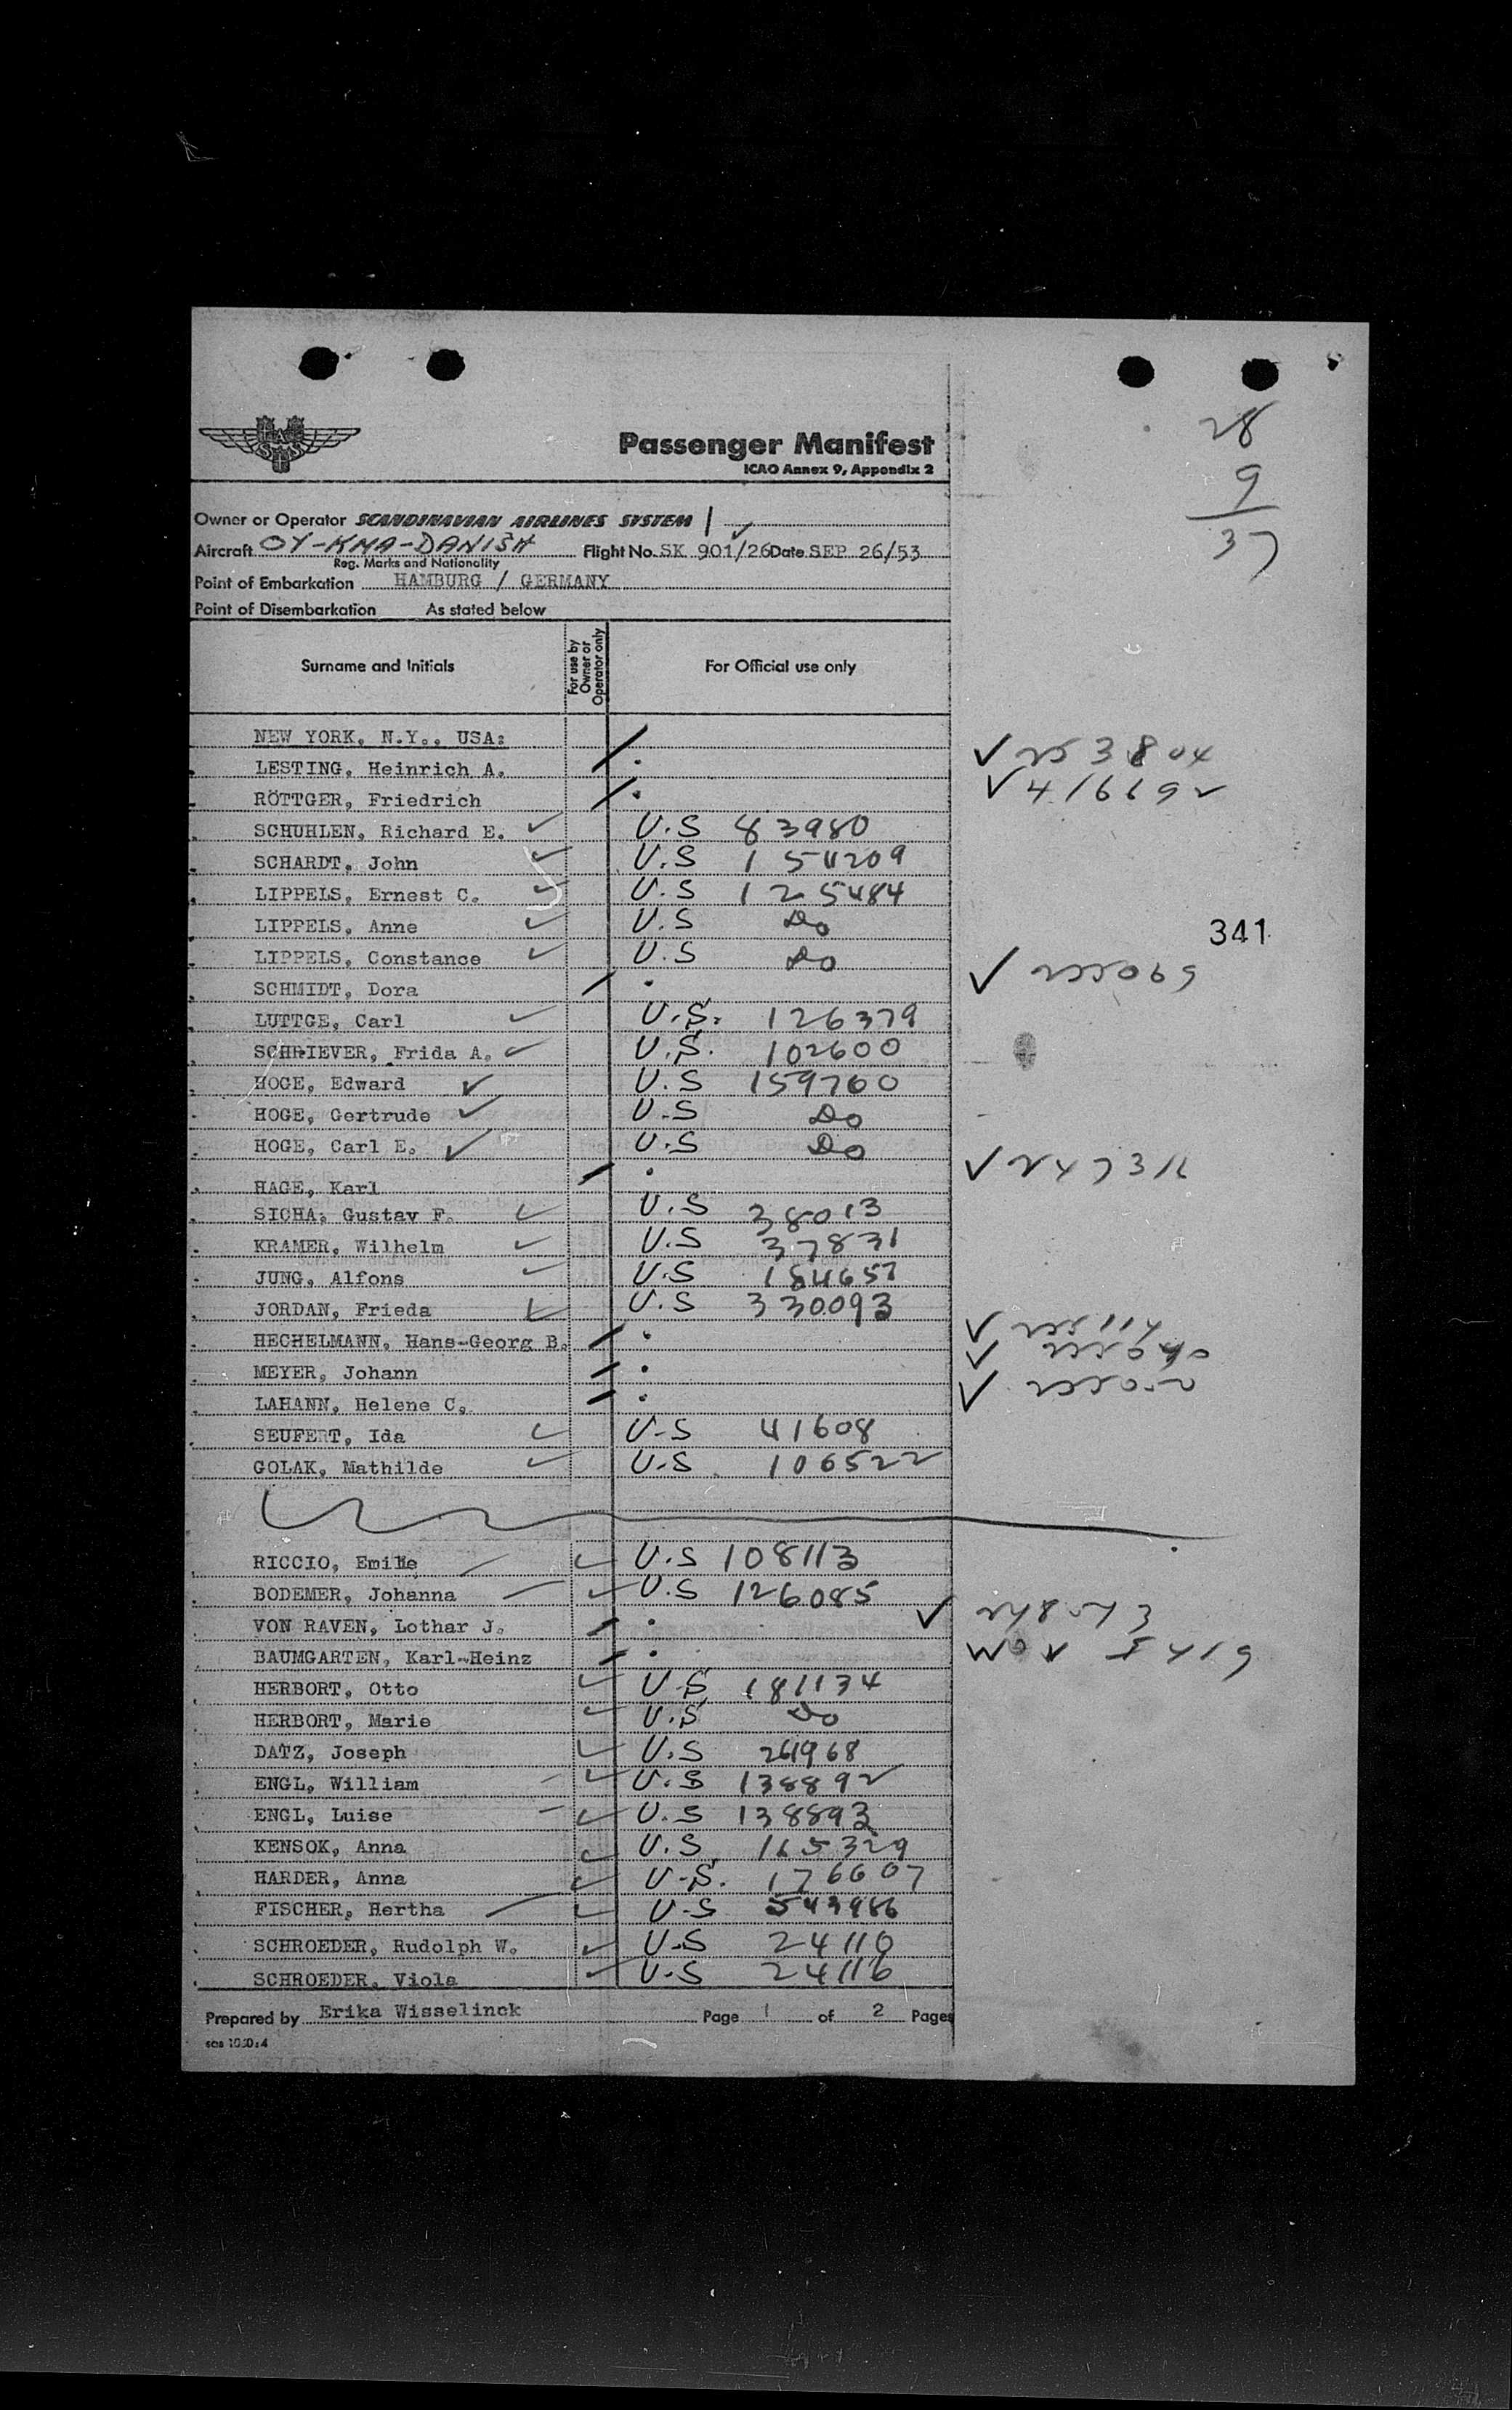 28
9
37
Passenger Manifest
ICAO Annex 9, Appendix 2
Owner or Operator SCANDINAVIAN AIRLINES SYSTEM
Aircraft OY-KMA-DANISH Flight No. SK 901/26 Date SEP 26/53
Reg. Marks and Nationality
Point of Embarkation HAMBURG / GERMANY
Point of Disembarkation As stated below
Surname and Initials For use by Owner or Operator only For Official use only
NEW YORK, N.Y., USA:
LESTING, Heinrich A. ✓ 253804
RÖTTGER, Friedrich ✓ 416692
SCHUHLEN, Richard E. ✓ U.S 83980
SCHARDT, John ✓ U.S 154209
LIPPELS, Ernest C. ✓ U.S 125484
LIPPELS, Anne ✓ U.S Do
341
LIPPELS, Constance ✓ U.S Do
SCHMIDT, Dora ✓
LUTTGE, Carl ✓ U.S. 126379
SCHRIEVER, Frida A. ✓ U.S. 102600
HOGE, Edward ✓ U.S 159760
HOGE, Gertrude ✓ U.S Do
HOGE, Carl E. ✓ U.S Do
HAGE, Karl ✓ 247316
SICHA, Gustav F. ✓ U.S 38013
KRAMER, Wilhelm ✓ U.S 37831
JUNG, Alfons ✓ U.S 184657
JORDAN, Frieda ✓ U.S 330093
HECHELMANN, Hans-Georg B. ✓
MEYER, Johann ✓
LAHANN, Helene C. ✓
SEUFERT, Ida ✓ U.S 41608
GOLAK, Mathilde ✓ U.S. 106522
RICCIO, Emilie ✓ U.S 108113
BODEMER, Johanna ✓ U.S 126085
VON RAVEN, Lothar J. ✓
BAUMGARTEN, Karl-Heinz
HERBORT, Otto ✓ U.S 181134
HERBORT, Marie ✓ U.S Do
DATZ, Joseph ✓ U.S 261968
ENGL, William ✓ U.S 138892
ENGL, Luise ✓ U.S 138893
KENSOK, Anna ✓ U.S. 165329
HARDER, Anna ✓ U.S. 176607
FISCHER, Hertha ✓ U.S 543986
SCHROEDER, Rudolph W. ✓ U.S 24116
SCHROEDER, Viola ✓ U.S 24116
Prepared by Erika Wisselinck Page 1 of 2 Pages